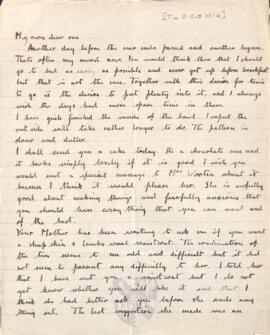 [Th 5 Oct 1916]
My own dear one
Another day before the war ends passed and another begun.
That's often my mood now. You would think then that I should
go to bed as early as possible and never get up before breakfast
but that is not the case. Together with this desire for time
to go is the desire to put plenty into it, and I always
wish the days had more spare time in them.
I have quite finished the inside of the board. I expect the
outside will take rather longer to do. The pattern is
slower and duller.
I shall send you a cake today. Its a chocolate one and
it looks simply lovely. If it is good I wish you
would send a special message to Mrs about it
because I think it would please her. She is awfully
good about making things and fearfully anxious that
you should have everything that you can want and
of the best.
Your Mother has been writing to ask me if you want
a sheepskin & leather coat waistcoat. The combination of
the two seems to me odd and difficult but it did
not seem to present any difficulty to her. I told her
that I have got you a waistcoat but I do not
yet know whether you will like it and that I
think she had better ask you before she sends any
thing out. The last suggestion she made was an